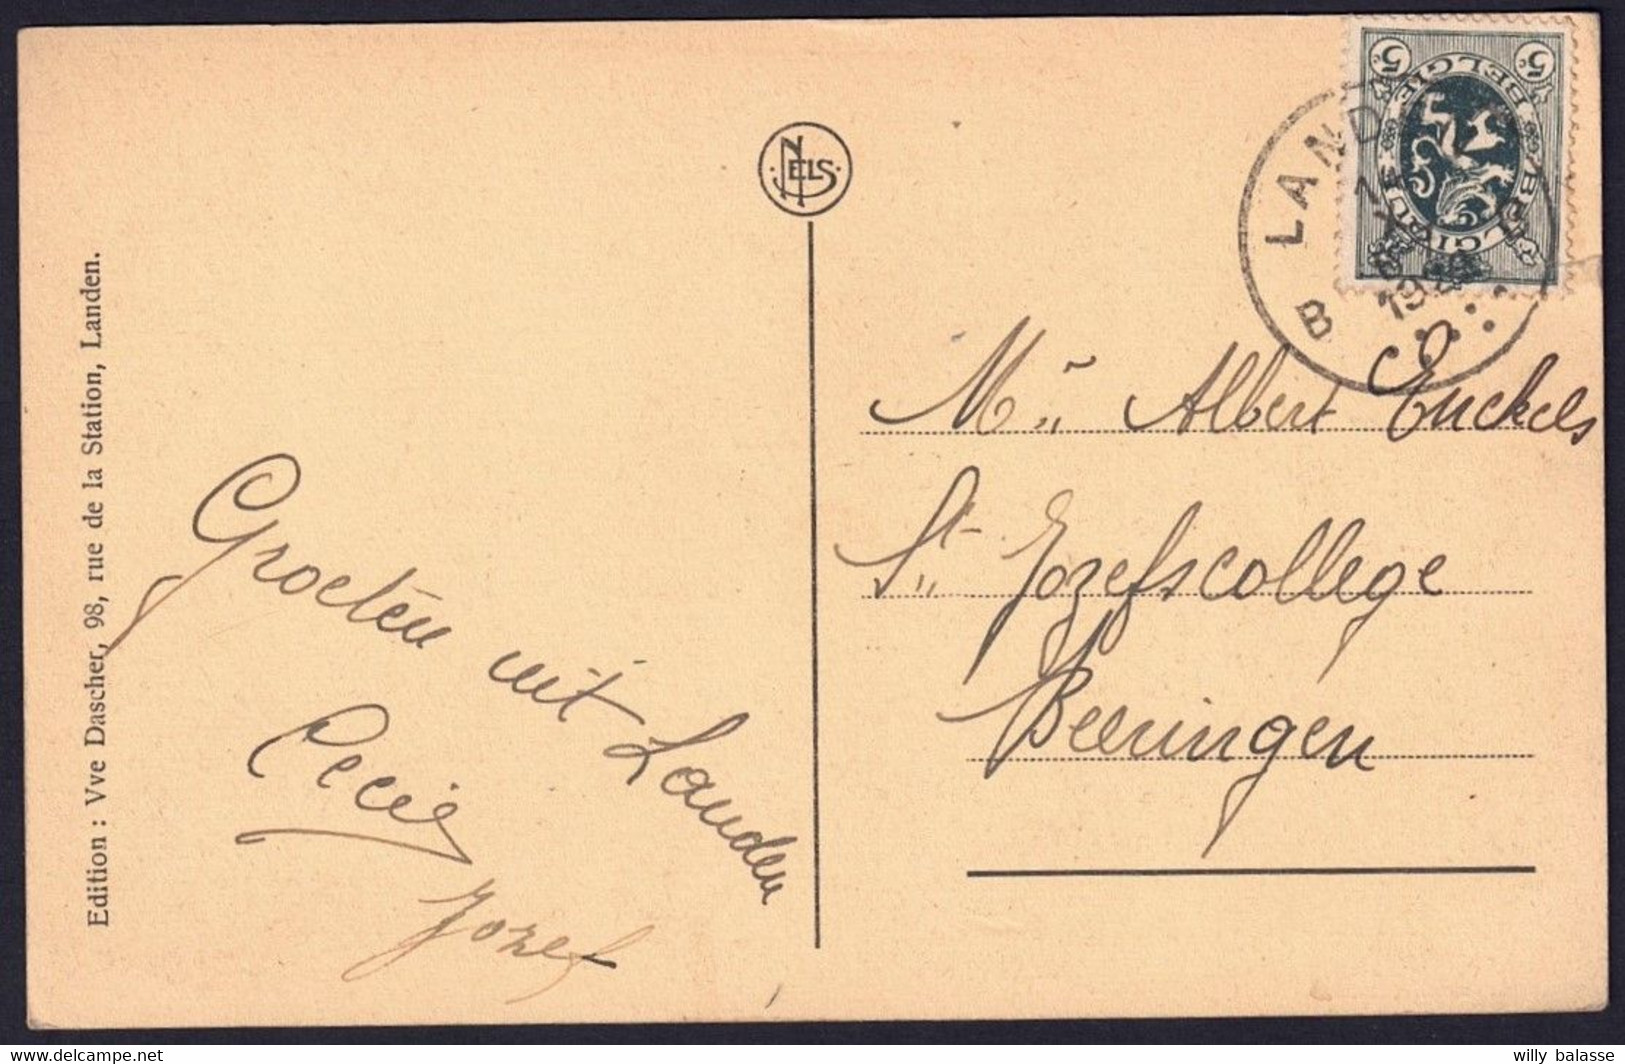 Edition : Vve Dascher, 98, rue de la Station, Landen.
NELS
5c 5c
BELGIE BELGIQUE
LANDEN
B
Groeten uit Landen
Cecile
Jozef
Mr Albert Enckels
St Jozefscollege
Beeringen
willy balasse